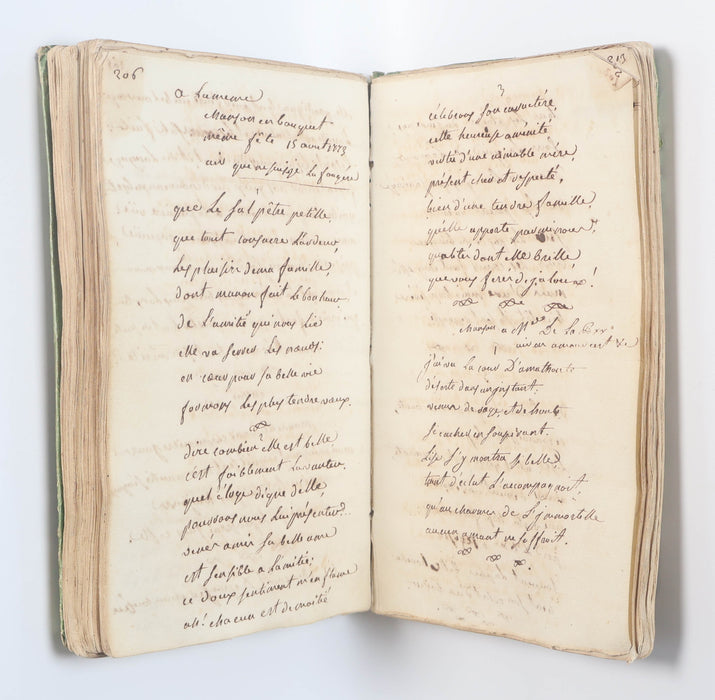 206
a La meme
chanson en bouquet
même fête 15 aout 1773
air que ne suis je La fougère
que Le sal pêtre petille,
que tout consacre L'ardeur,
Les plaisirs de ma famille,
dont manon fait Le bonheur.
de L'amitié qui nous Lie
elle va serrer Les nœuds:
en cœur pour sa belle vie
formons Les plus tendre vœux.
dire combien elle est belle
c'est foiblement La vanter,
quel éloge digne d'elle,
pouvons nous Lui présenter?...
venés amis sa belle ame
est sensible a L'amitié;
ce doux sentiment m'enflame
ah! chacun est de moitié
213
3
célébrons son caractère,
cette heureuse aménité
vertu d'une aimable mère,
présent cher et respecté,
bien d'une tendre famille,
qu'elle apporte pour
qualités dont elle brille
que vous ferés déja loix!
chanson a Mde De La
j'ai vu La cour D'amathonte
déserte dans un instant:
venus de rage, et de honte
se cacher en soupirant.
Lise s'y montra si belle,
tant d'eclat L'accompagnoit,
qu'au charmes de L'immortelle
aucun amant ne s'offroit.